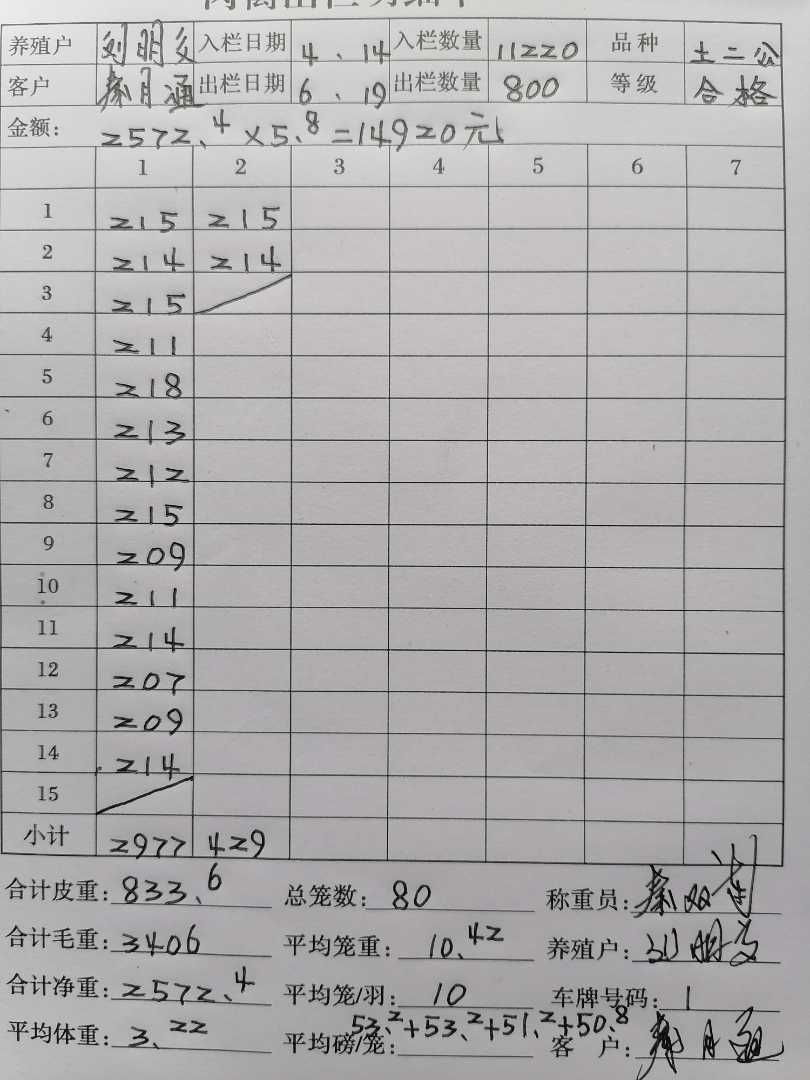 养殖户 刘明多 入栏日期 4、14 入栏数量 11220 品种 土二公
客户 秦月通 出栏日期 6、19 出栏数量 800 等级 合格
金额: 2572.4×5.8=14920元
1 2 3 4 5 6 7
1 215 215
2 214 214
3 215
4 211
5 218
6 213
7 212
8 215
9 209
10 211
11 214
12 207
13 209
14 214
15
小计 2977 429
合计皮重: 833.6 总笼数: 80 称重员:
合计毛重: 3406 平均笼重: 10.42 养殖户:
合计净重: 2572.4 平均笼/羽: 10 车牌号码: 1
平均体重: 3.22 平均磅/笼: 53.2+53.2+51.2+50.8 客户: